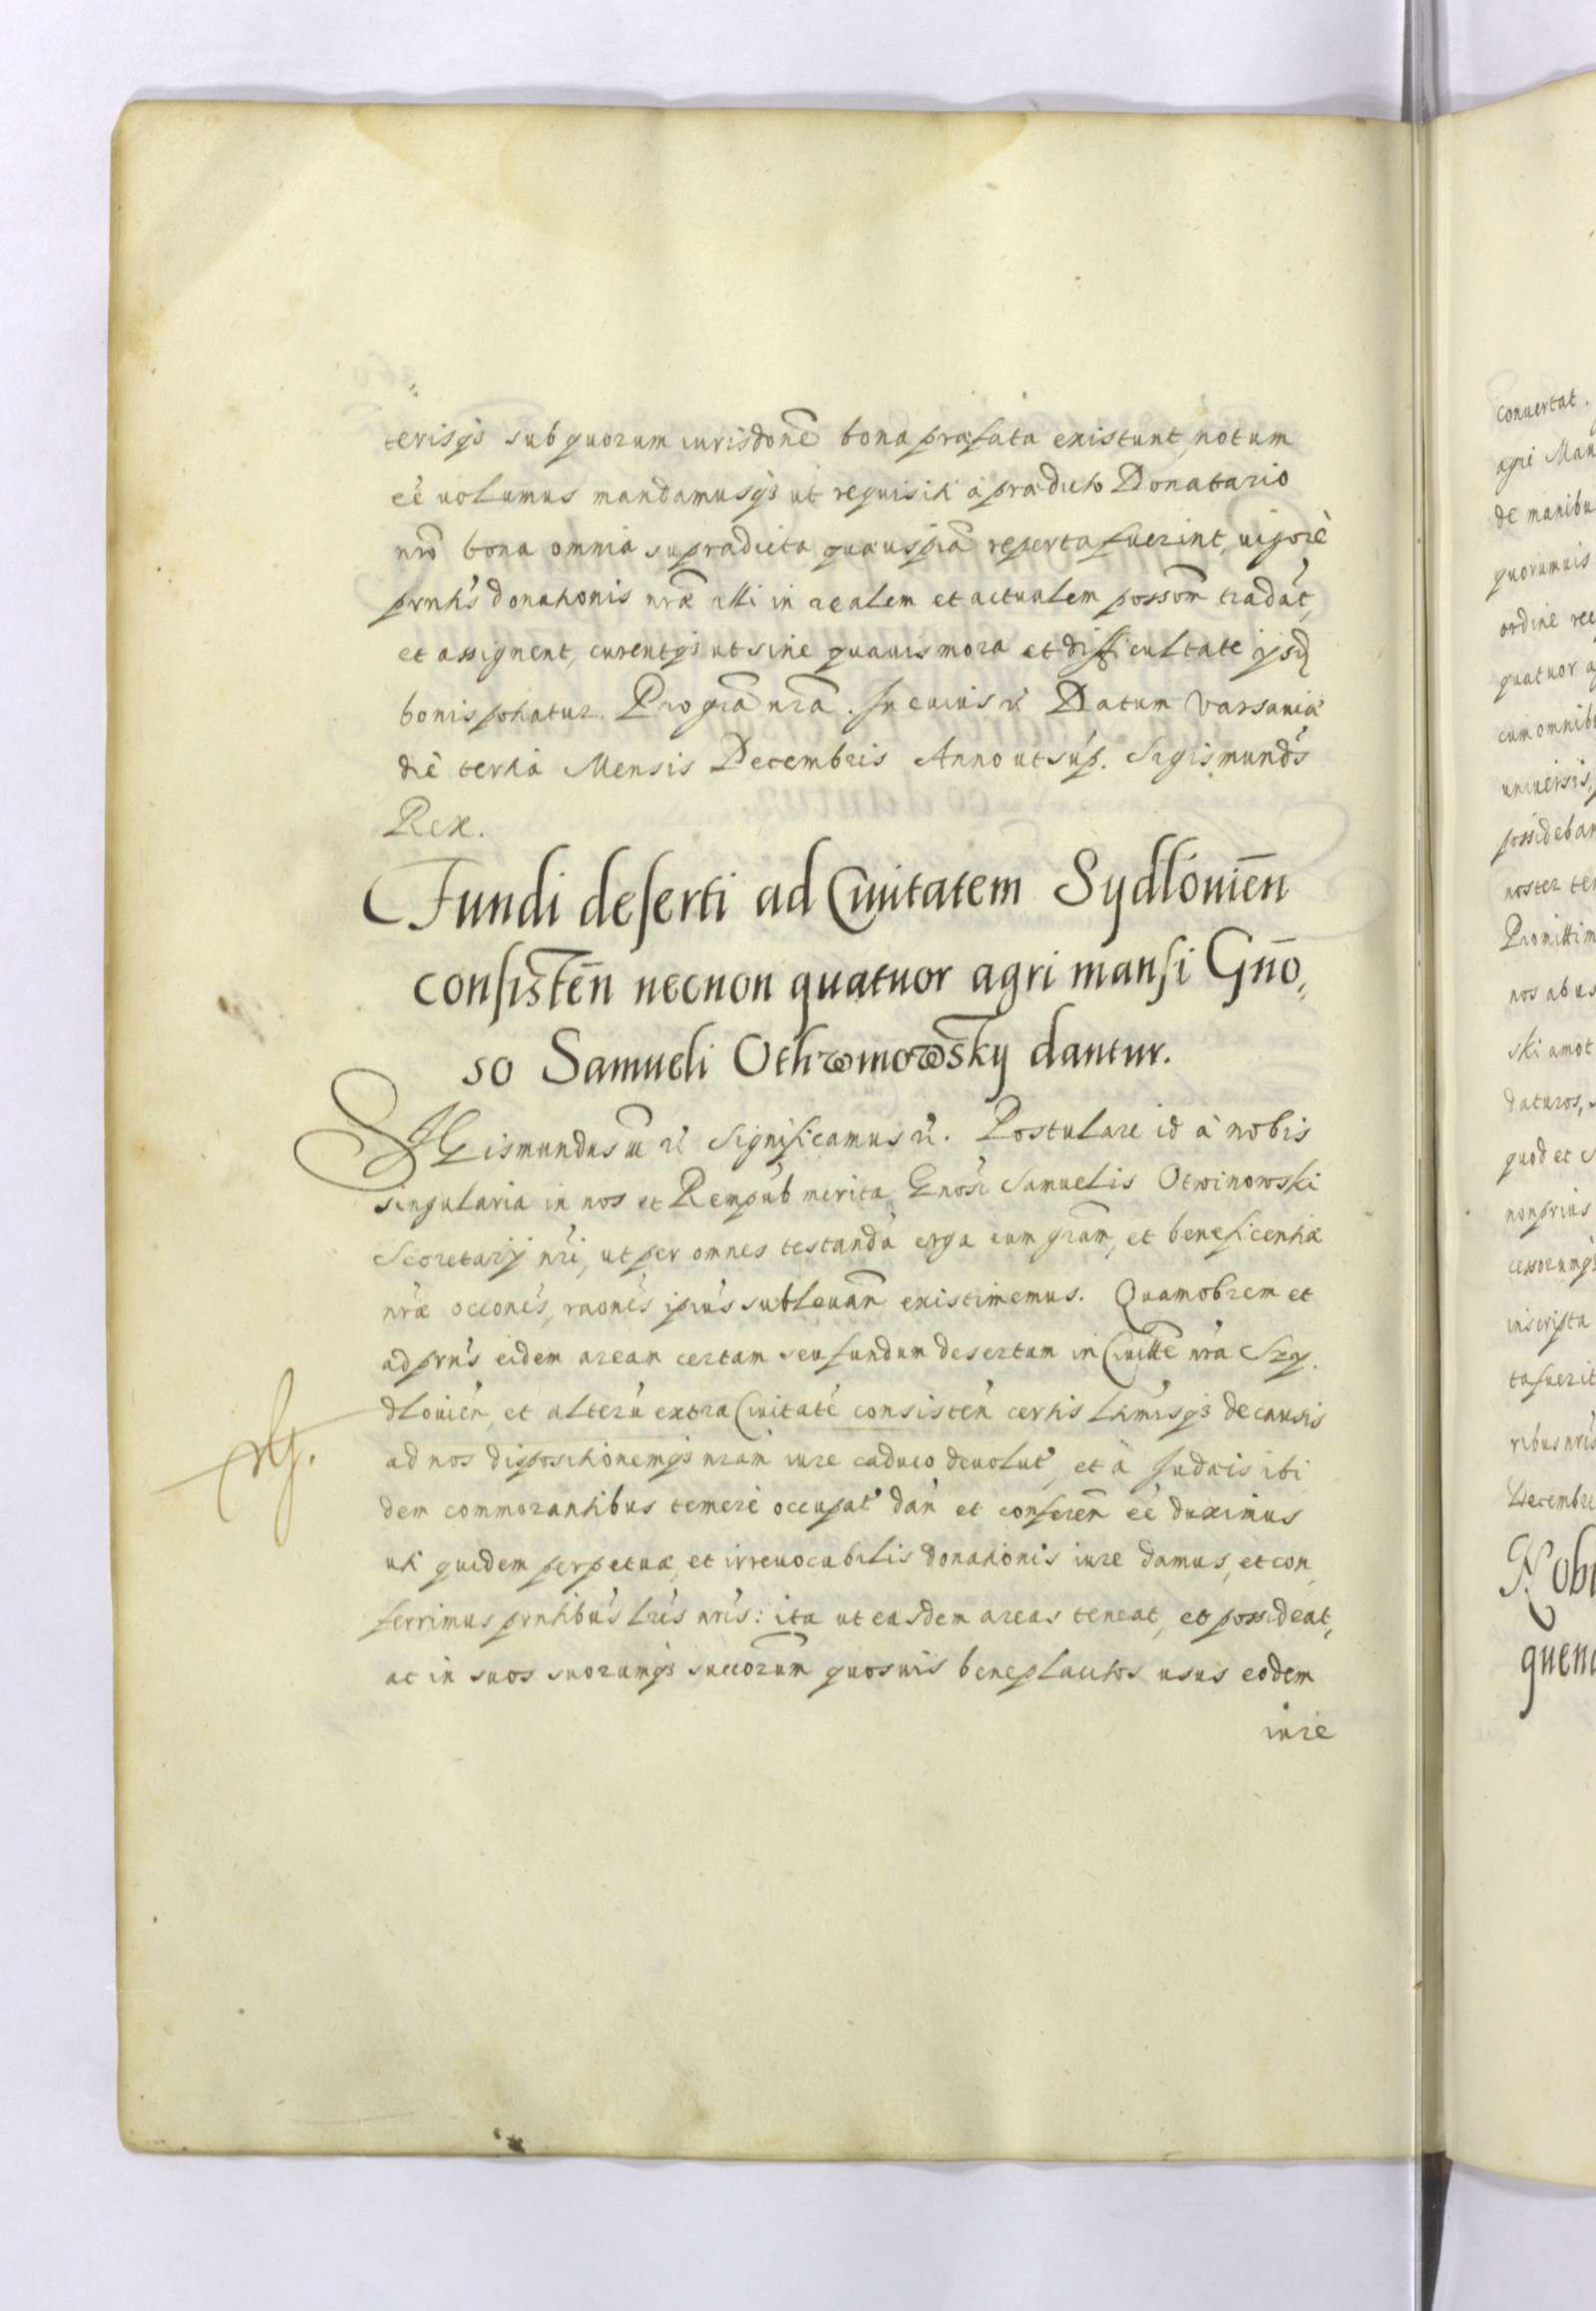 terisqз sub quorum iurisdonē bona præfata existunt, notum
eē uolumus mandamusqз ut requisiti à prædicto Donatario
nrō bona omnia supradicta quæuspiā reperta fuerint, uigore
prntis donationis nræ illi in realem et actualem possom̄ tradāt,
et assignent, curentqз ut sine quauis mora et difficultate ijsd
bonis potiatur. Pro grā nrā. In cuius r Datum Varsauiæ
die tertia Mensis Decembris Anno ut sup. Sigismunds
Rex.
Fundi deserti ad Ciuitatem Sydlouien̄
consisten̄ necnon quatuor agri mansi Gn̄o,,
so Samueli Othwinowsky dantur.
SIGismundus ut r Significamus r. Postulare id à nobis
singularia in nos et Rempub merita Gnosi Samuelis Otwinowski
Secretarij nri, ut per omnes testandæ erga eum gram, et beneficentiæ
nræ occones, raones ipius subleuan̄ existimemus. Quamobrem et
ad prns eidem aream certam seu fundum desertum in Ciuitte nra Szy,
dlouien, et alterū extra Ciuitatē consisten certis ltimisqз de causis
ad nos dispositionemqз nram iure caduco deuolut, et à Judæis ibi
dem commorantibus temerè occupat dan et conferen eē duximus
uti quidem perpetuæ, et irreuocabilis donationis iure damus, et con,
ferrimus prntibus lris nris: ita ut easdem areas teneat, et possideat,
ac in suos suorumqз succorum quosuis beneplacitos usus eodem
iure
convertat.
agri Man
de manibu
quorumuis
ordine
quatuor a
cum omnib
uniuersis,
possideban
noster te
nos ab
ski amot
daturos,
quod et
non prius
cessorumqз
inscripta
ta fuerit
ribus nris
Decembri
Nobi
quem